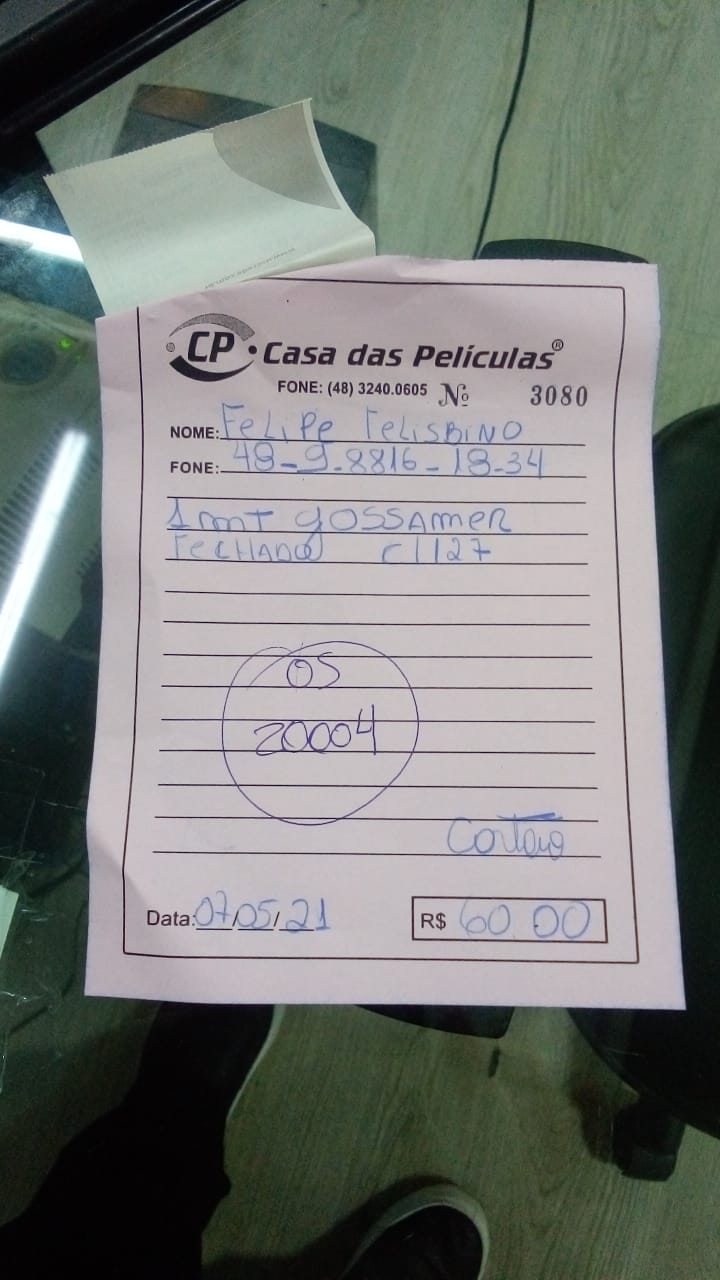 CP Casa das Películas®
FONE: (48) 3240.0605 Nº 3080
NOME: FELIPE FELISBINO
FONE: 48-9.8816-18-34
1 mT gOSSAmer
FECHADO C1127
OS
20004
Cartão
Data: 07/05/21 R$ 60.00